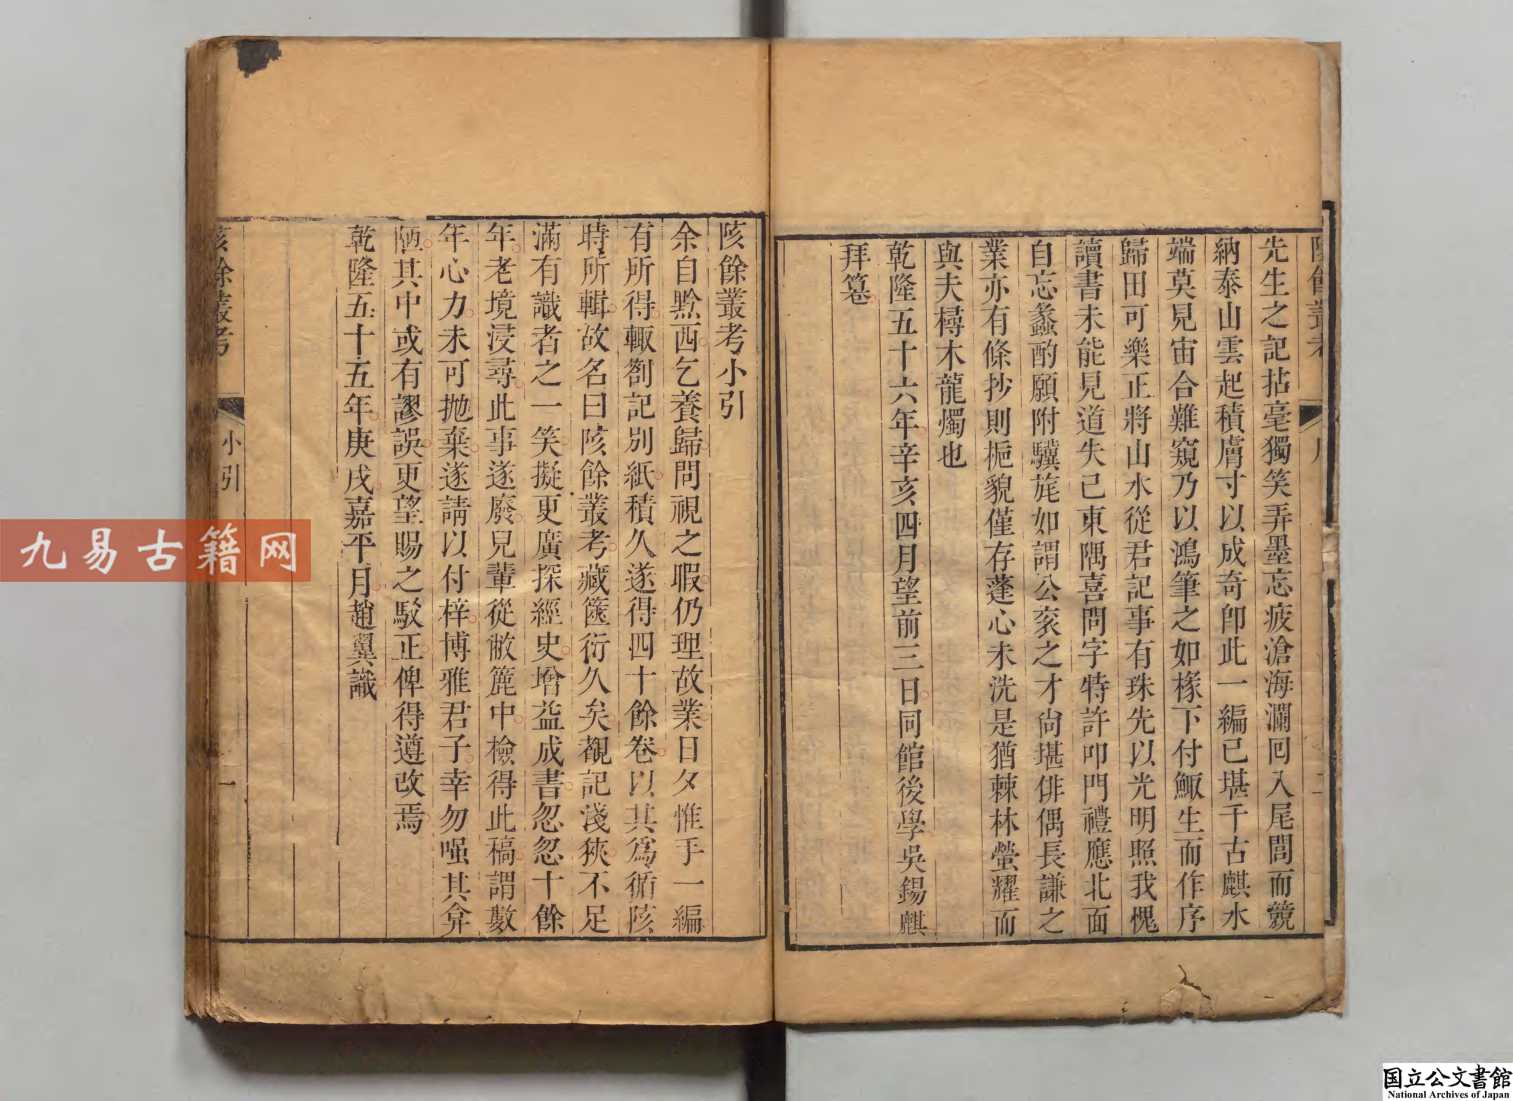 先生之記拈毫獨笑弄墨忘疲滄海瀾囘入尾閭而競
納泰山雲起積膚寸以成奇卽此一編已堪千古麒水
端莫見宙合難窺乃以鴻筆之如椽下付鯫生而作序
歸田可樂正將山水從君記事有珠先以光明照我愧
讀書未能見道失己東隅喜問字特許叩門禮應北面
自忘蠡酌願附驥旄如謂公衮之才尙堪俳偶長謙之
業亦有條抄則梔貌僅存蓬心未洗是猶棘林螢耀而
與夫樳木龍燭也
乾隆五十六年辛亥四月望前三日同館後學吳錫麒
拜篹
陔餘叢考小引
余自黔西乞養歸問視之暇仍理故業日夕惟手一編
有所得輙劄記別紙積久遂得四十餘卷以其爲循陔
時所輯故名曰陔餘叢考藏篋衍久矣覩記淺狹不足
滿有識者之一笑擬更廣探經史增益成書忽忽十餘
年老境浸尋此事遂廢兒輩從敝簏中檢得此稿謂數
年心力未可抛棄遂請以付梓博雅君子幸勿嗤其弇
陋其中或有謬誤更望賜之駁正俾得遵改焉
乾隆五十五年庚戌嘉平月趙翼識
陔餘叢考
小引
一
九易古籍网
国立公文書館
National Archives of Japan